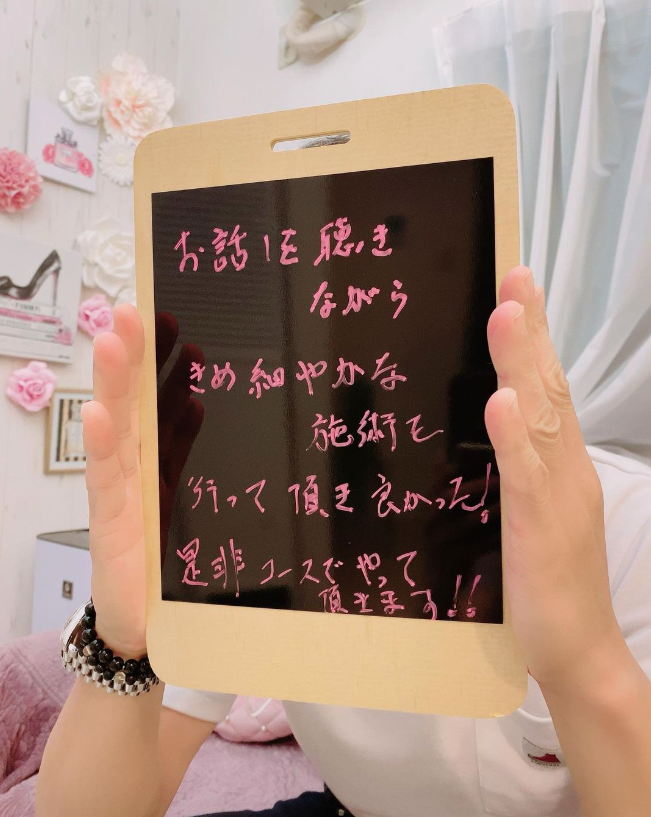 お話しを聴き
ながら
きめ細やかな
施術を
行って頂き良かった!
是非コースでやって
頂きます!!